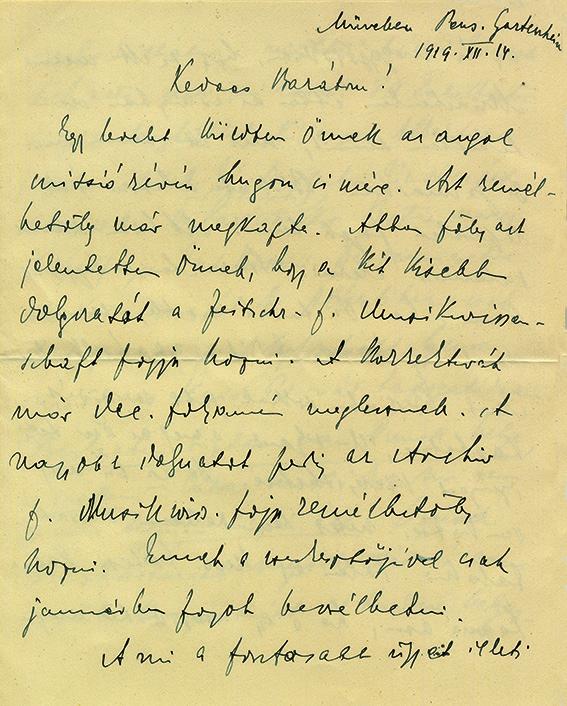 München Pens. Gartenheim
1919. XII. 14.
Kedves Barátom!
Egy levelet küldtem Önnek az angol
misszió révén hugom címére. Azt remél-
hetőleg már megkapta. Abban főleg azt
jelentettem Önnek, hogy a két kisebb
dolgozatát a Zeitschr. f. Musikwissen-
schaft fogja hozni. A korrekturák
már dec. folyamán meglesznek. A
nagyobb dolgozatot pedig az Archiv
f. Musikwiss. fogja remélhetőleg
hozni. Ennek a szerkesztőjével csak
januárban fogok beszélhetni.
A mi a fontosabb ügyeit illeti